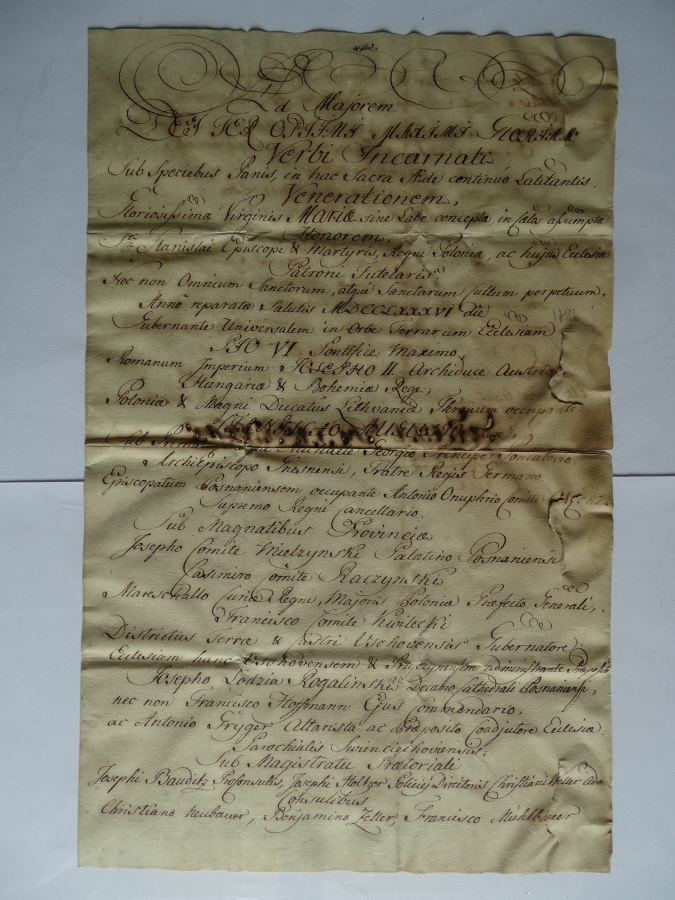 Ad Majorem
DEI TER OPTIMI MAXIMI GLORIAM
Verbi Incarnati
Sub Speciebus Panis, in hac Sacra Æde continuo Latitantis.
Venerationem,
Gloriosissimæ Virginis MARIÆ sine Labe concepta, in Cælos assumptæ
Honorem,
Stanislai Episcopi & Martyris, Regni Poloniæ, ac hujus Ecclesiæ
Patroni Tutelaris
Nec non Omnium Sanctorum, atque Sanctarum cultum perpetuum.
Anno reparatæ Salutis MDCCLXXXVI die 1786
Gubernante Universalem in Orbe Terrarum Ecclesiam
PIO VI Pontifice Maximo,
Romanum Imperium JOSEPHO II Archiduce Austriæ
Hungariæ & Bohemiæ Rege;
Poloniæ & Magni Ducatus Lithvaniæ Thronum occupante
Sub Georgio Principe Poniatovio
ArchiEpiscopo Gnesnensi, Fratre Regis Germano,
Episcopatum Posnaniensem occupante Antonio Onuphrio Comite
Supremo Regni Cancellario.
Sub Magnatibus Provinciæ
Josepho Comite Mielzynski Palatino Posnaniensi
Casimiro Comite Raczynski
Mareschallo Curiæ Regni, Majoris Poloniæ Præfecto Generali,
Francisco Comite Kwilecki
Districtus Terræ & Castri Vschovensis Gubernatore,
Ecclesiam hanc Vschovensem & administrante Præposito
Josepho Lodzia Rogalinski Decano Cathedrale Posnaniensi,
nec non Francisco Hoffmann Ejus Commendario,
ac Antonio Gryger Altarista ac Præposito Coadjutore Ecclesiæ
Parochialis Swinciechoviensis;
Sub Magistratu Prætoriali
Josephi Bauditz Proconsulis, Josephi Holtzer Policiej Directoris Christiani
Consulibus
Christiano Neubauer, Benjamino Zeller, Francisco Mühlbauer